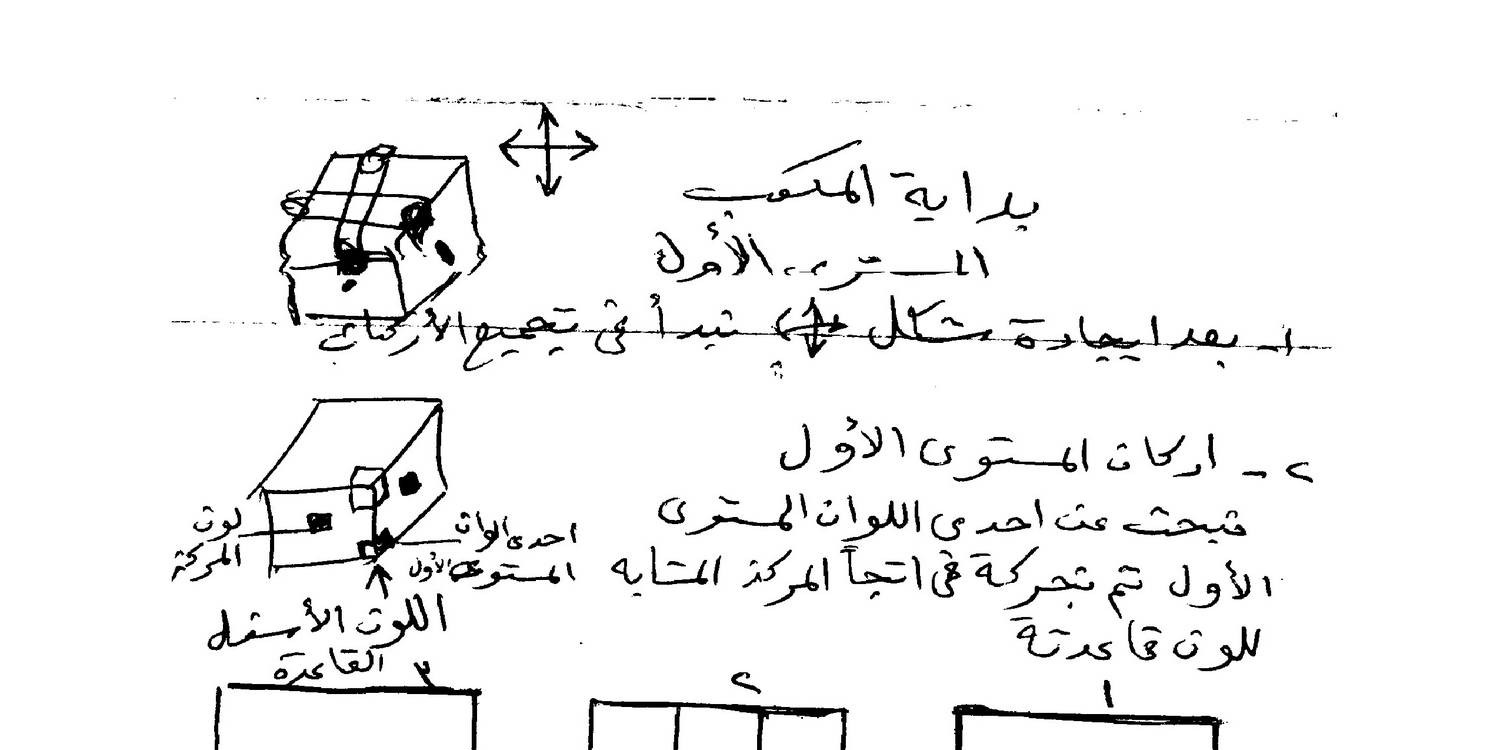 بداية المكعب
المستوى الأول
١- بعد ايجادة شكل نبدأ في تجميع الأركان
٢- اركان المستوى الأول
نبحث عن احدى اللوان المستوى
الأول ثم نحركة في اتجاً المركز المشابه
للون قاعدتة
لون
المركز
احدى الوان
المستوى الأول
اللون الأسفل
القاعدة
١
٢
٣